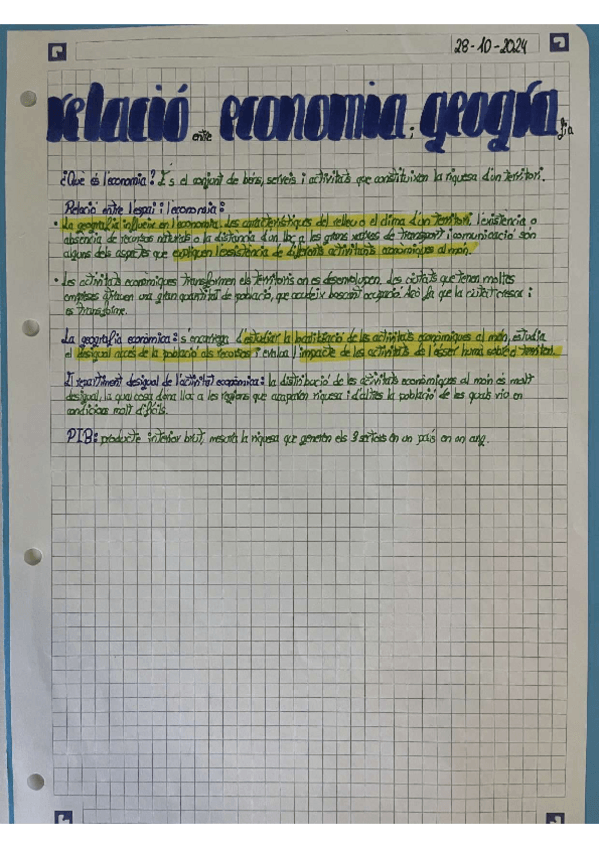 28-10-2024
relació entre economia i geografia
¿Què és l'economia? És el conjunt de béns, serveis i activitats que constitueixen la riquesa d'un territori.
Relació entre l'espai i l'economia:
• La geografia influeix en l'economia. Les característiques del relleu o el clima d'un territori, l'existència o
absència de recursos naturals o la distància d'un lloc a les grans xarxes de transport i comunicació són
alguns dels aspectes que expliquen l'existència de diferents activitats econòmiques al món.
• Les activitats econòmiques transformen els territoris on es desenvolupen. Les ciutats que tenen moltes
empreses atrauen una gran quantitat de població, que acudeix buscant ocupació. Açò fa que la ciutat cresca i
es transforme.
La geografia econòmica: s'encarrega d'estudiar la localització de les activitats econòmiques al món, estudia
el desigual accés de la població als recursos i avalua l'impacte de les activitats de l'ésser humà sobre el territori.
El repartiment desigual de l'activitat econòmica: la distribució de les activitats econòmiques al món és molt
desigual, la qual cosa dona lloc a les regions que acaparen riquesa i d'altres la població de les quals viu en
condicions molt difícils.
PIB: producte interior brut, mesura la riquesa que generen els 3 sectors en un país en un any.